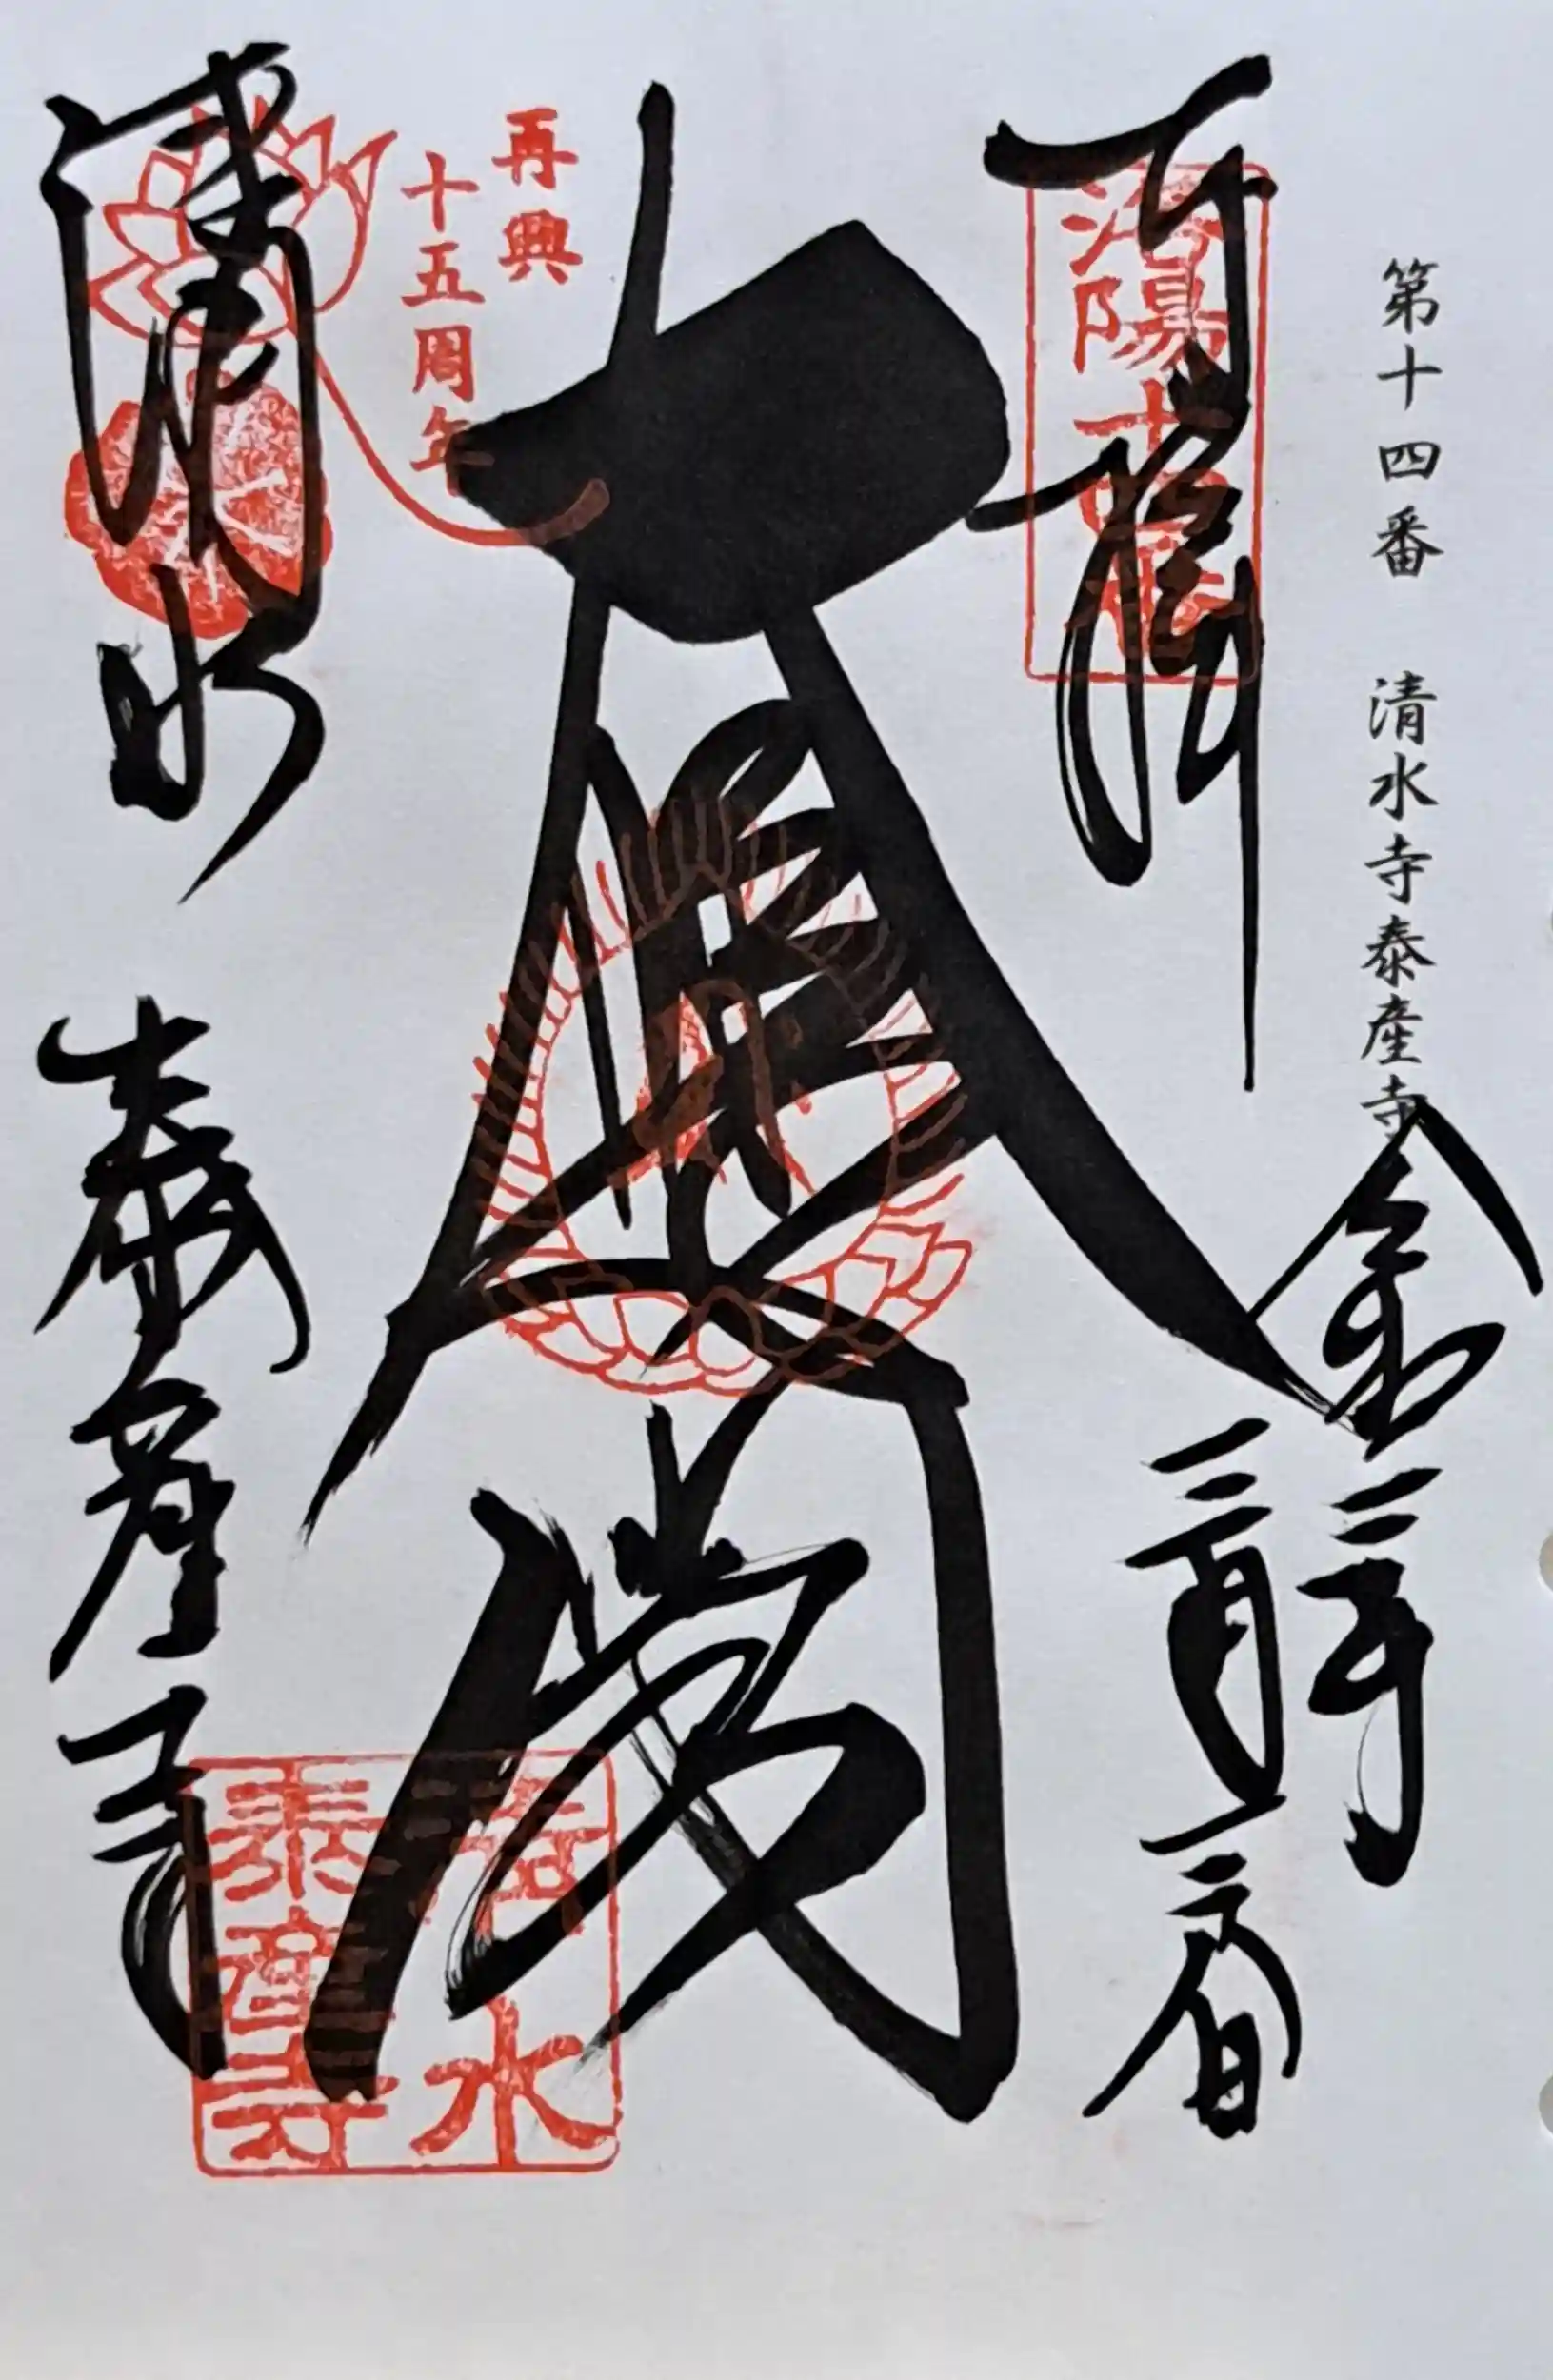 第十四番 清水寺泰産寺
奉拝
令和二年
三月
洛陽十四番
大悲閣
再興
十五周年
清水 泰産寺
清水
泰産寺